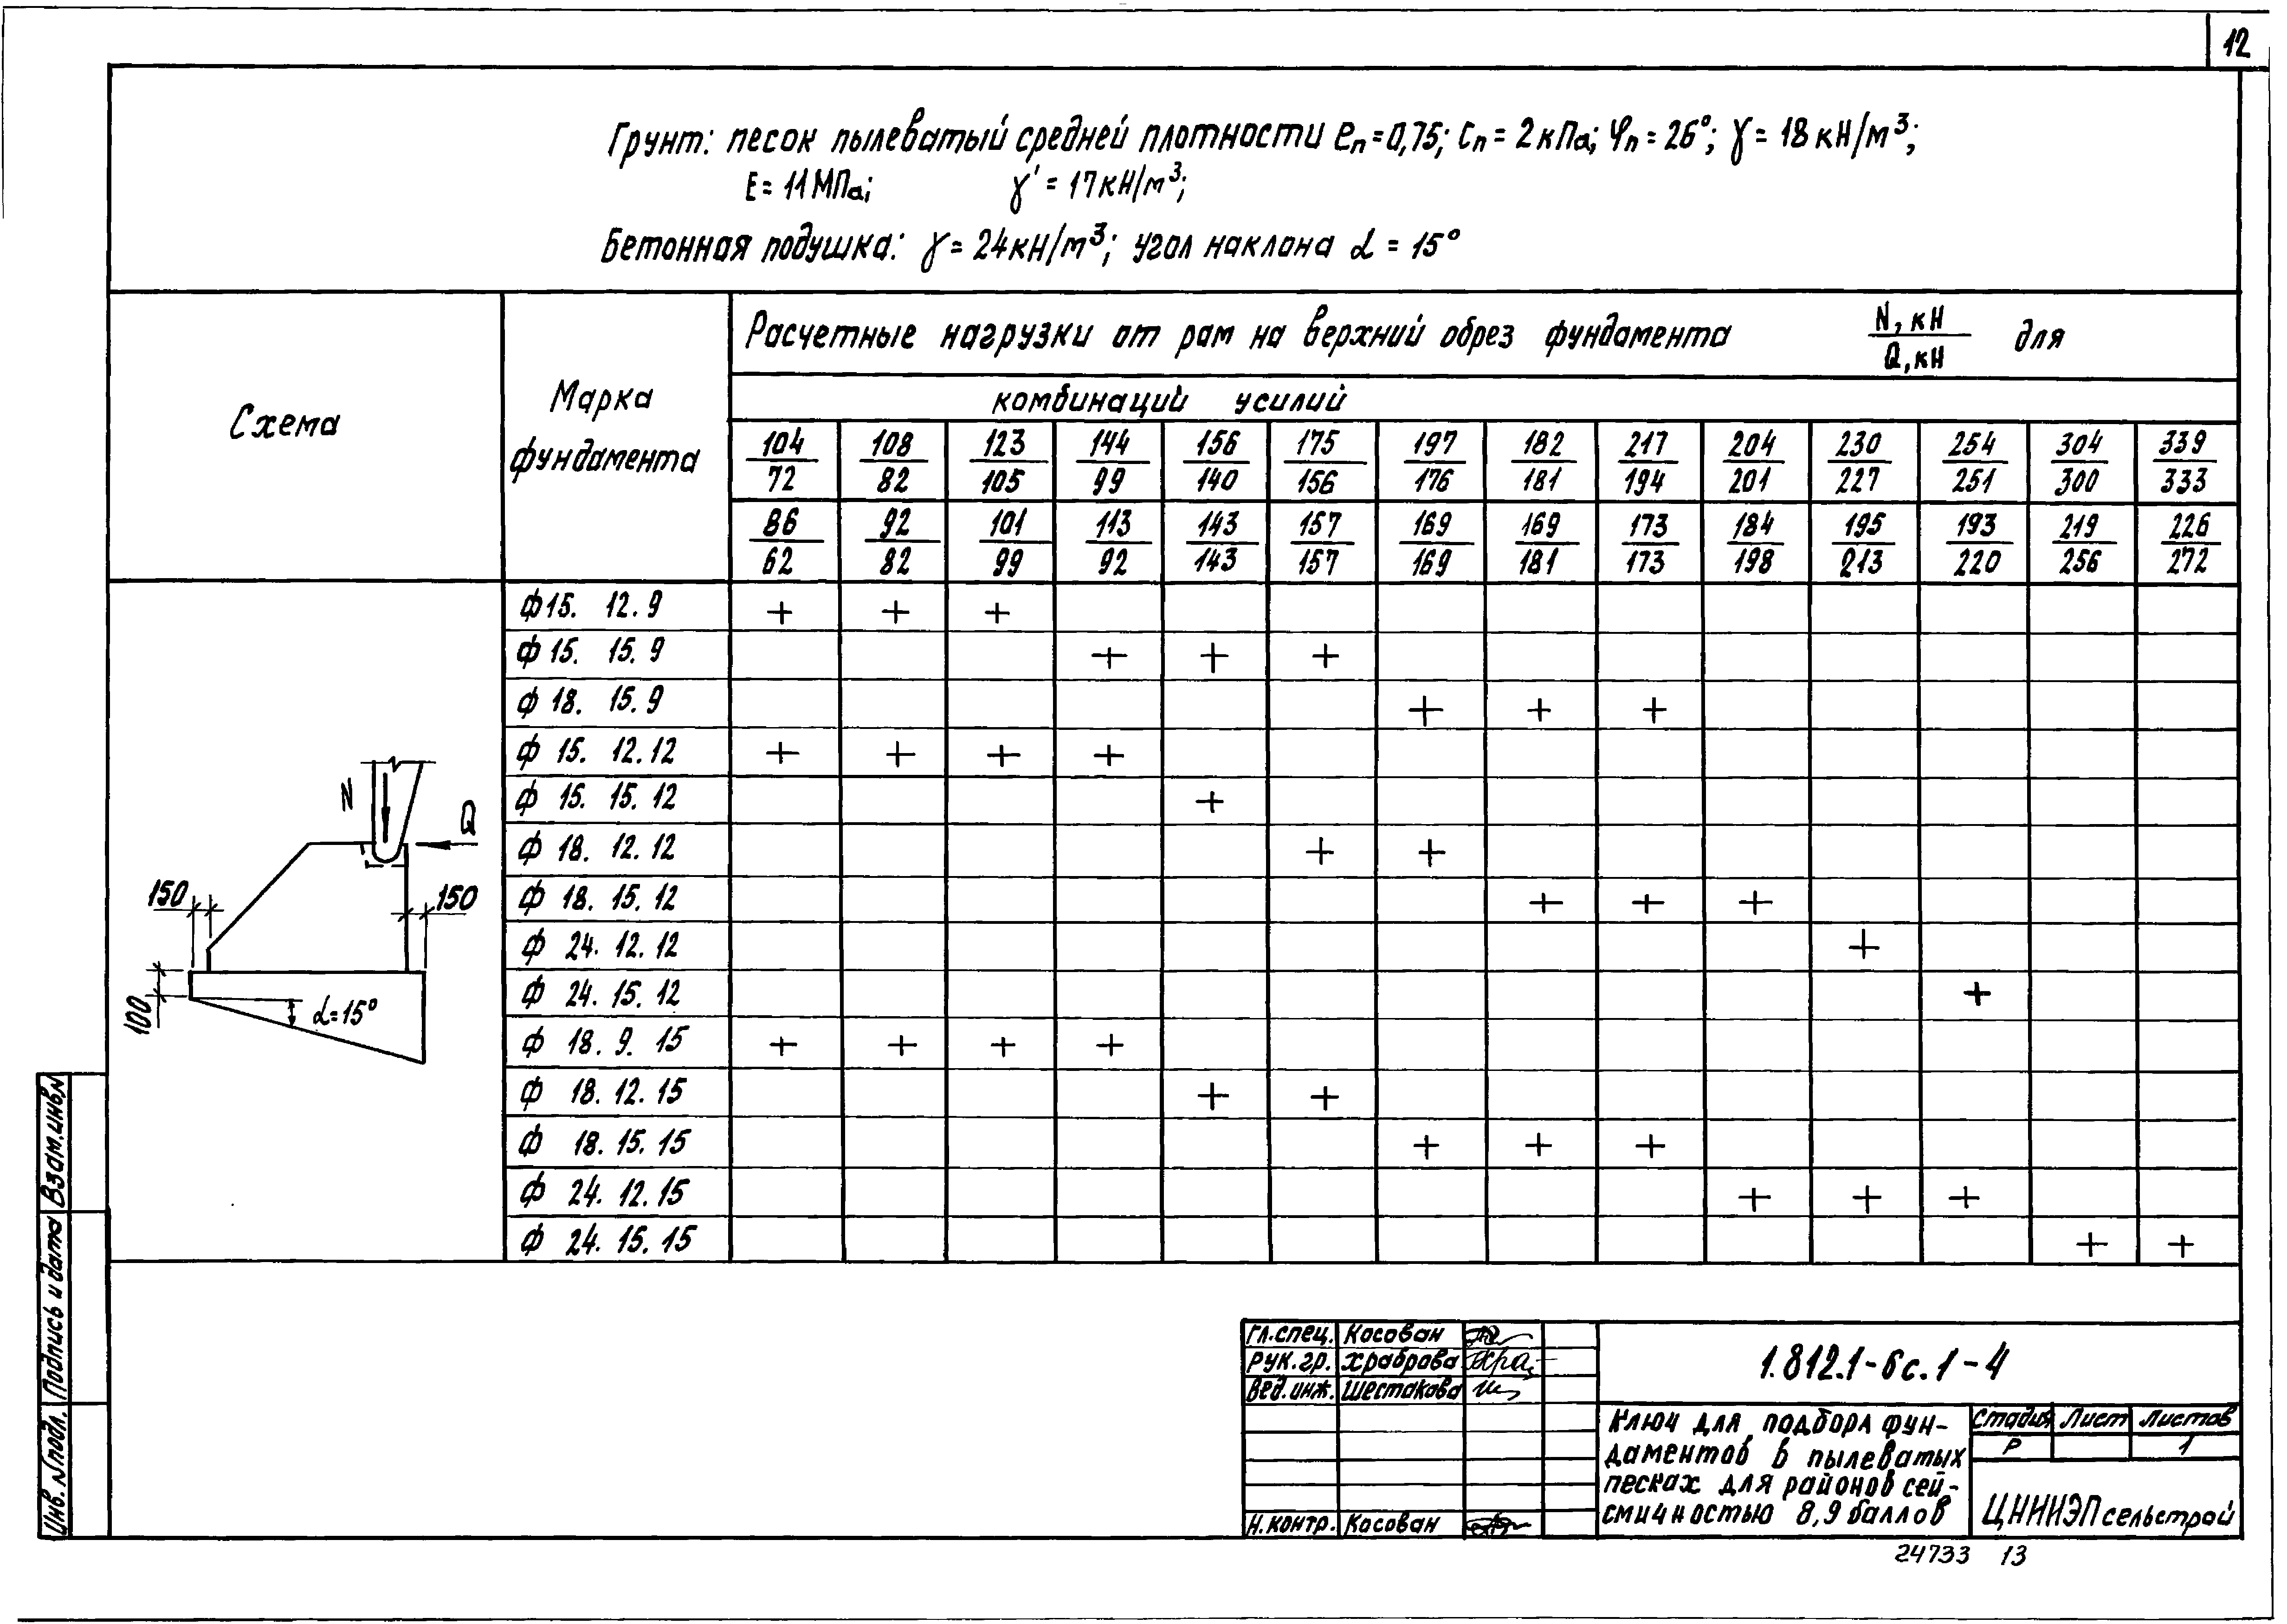 12
Грунт: песок пылеватый средней плотности eп=0,75; Cп=2кПа; φп=26°; γ=18кН/м³;
E=11МПа; γ'=17кН/м³;
Бетонная подушка: γ=24кН/м³; угол наклона α=15°
Схема
Марка фундамента
Расчетные нагрузки от рам на верхний обрез фундамента N,кН / Q,кН для
комбинаций усилий
104/72 108/82 123/105 144/99 156/140 175/156 197/176 182/181 217/194 204/201 230/227 254/251 304/300 339/333
86/62 92/82 101/99 113/92 143/143 157/157 169/169 169/181 173/173 184/198 195/213 193/220 219/256 226/272
ф15. 12.9 + + +
ф 15. 15.9 + + +
ф 18. 15.9 + + +
ф 15. 12.12 + + + +
ф 15. 15.12 +
ф 18. 12.12 + +
ф 18. 15.12 + + +
ф 24. 12.12 +
ф 24. 15.12 +
ф 18. 9. 15 + + + +
ф 18. 12. 15 + +
ф 18. 15. 15 + + +
ф 24. 12. 15 + + +
ф 24. 15. 15 + +
N
Q
150
150
100
α=15°
Взам.инв.N
Подпись и дата
Инв. N подл.
Гл.спец. Косован
Рук.гр. Храброва
Вед.инж. Шестакова
Н.контр. Косован
1.812.1-6с.1-4
Ключ для подбора фун-
даментов в пылеватых
песках для районов сей-
смичностью 8,9 баллов
Стадия Лист Листов
Р 1
ЦНИИЭПсельстрой
24733 13